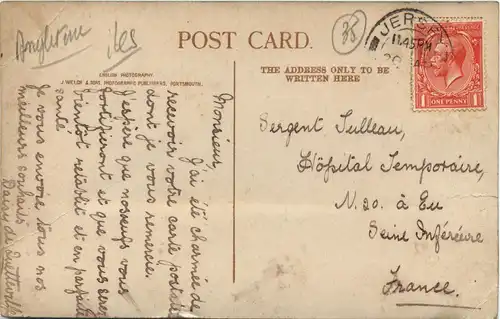 Angleterre
iles
POST CARD.
35
JERSEY
11.45 PM
ONE PENNY
ENGLISH PHOTOGRAPHY
J. WELCH & SONS, PHOTOGRAPHIC PUBLISHERS, PORTSMOUTH.
THE ADDRESS ONLY TO BE
WRITTEN HERE
Monsieur,
J'ai été charmée de
recevoir votre carte postale
dont je vous remercie.
J'espère que nos œufs vous
fortifieront et que vous serez
bientot retablit et en parfaite
santé
Je vous envoie tous nos
meilleurs souhaits
Daisy de
Sergent Tulleau,
Hôpital Temporaire,
N. 20. à Eu
Seine Inférieure
France.